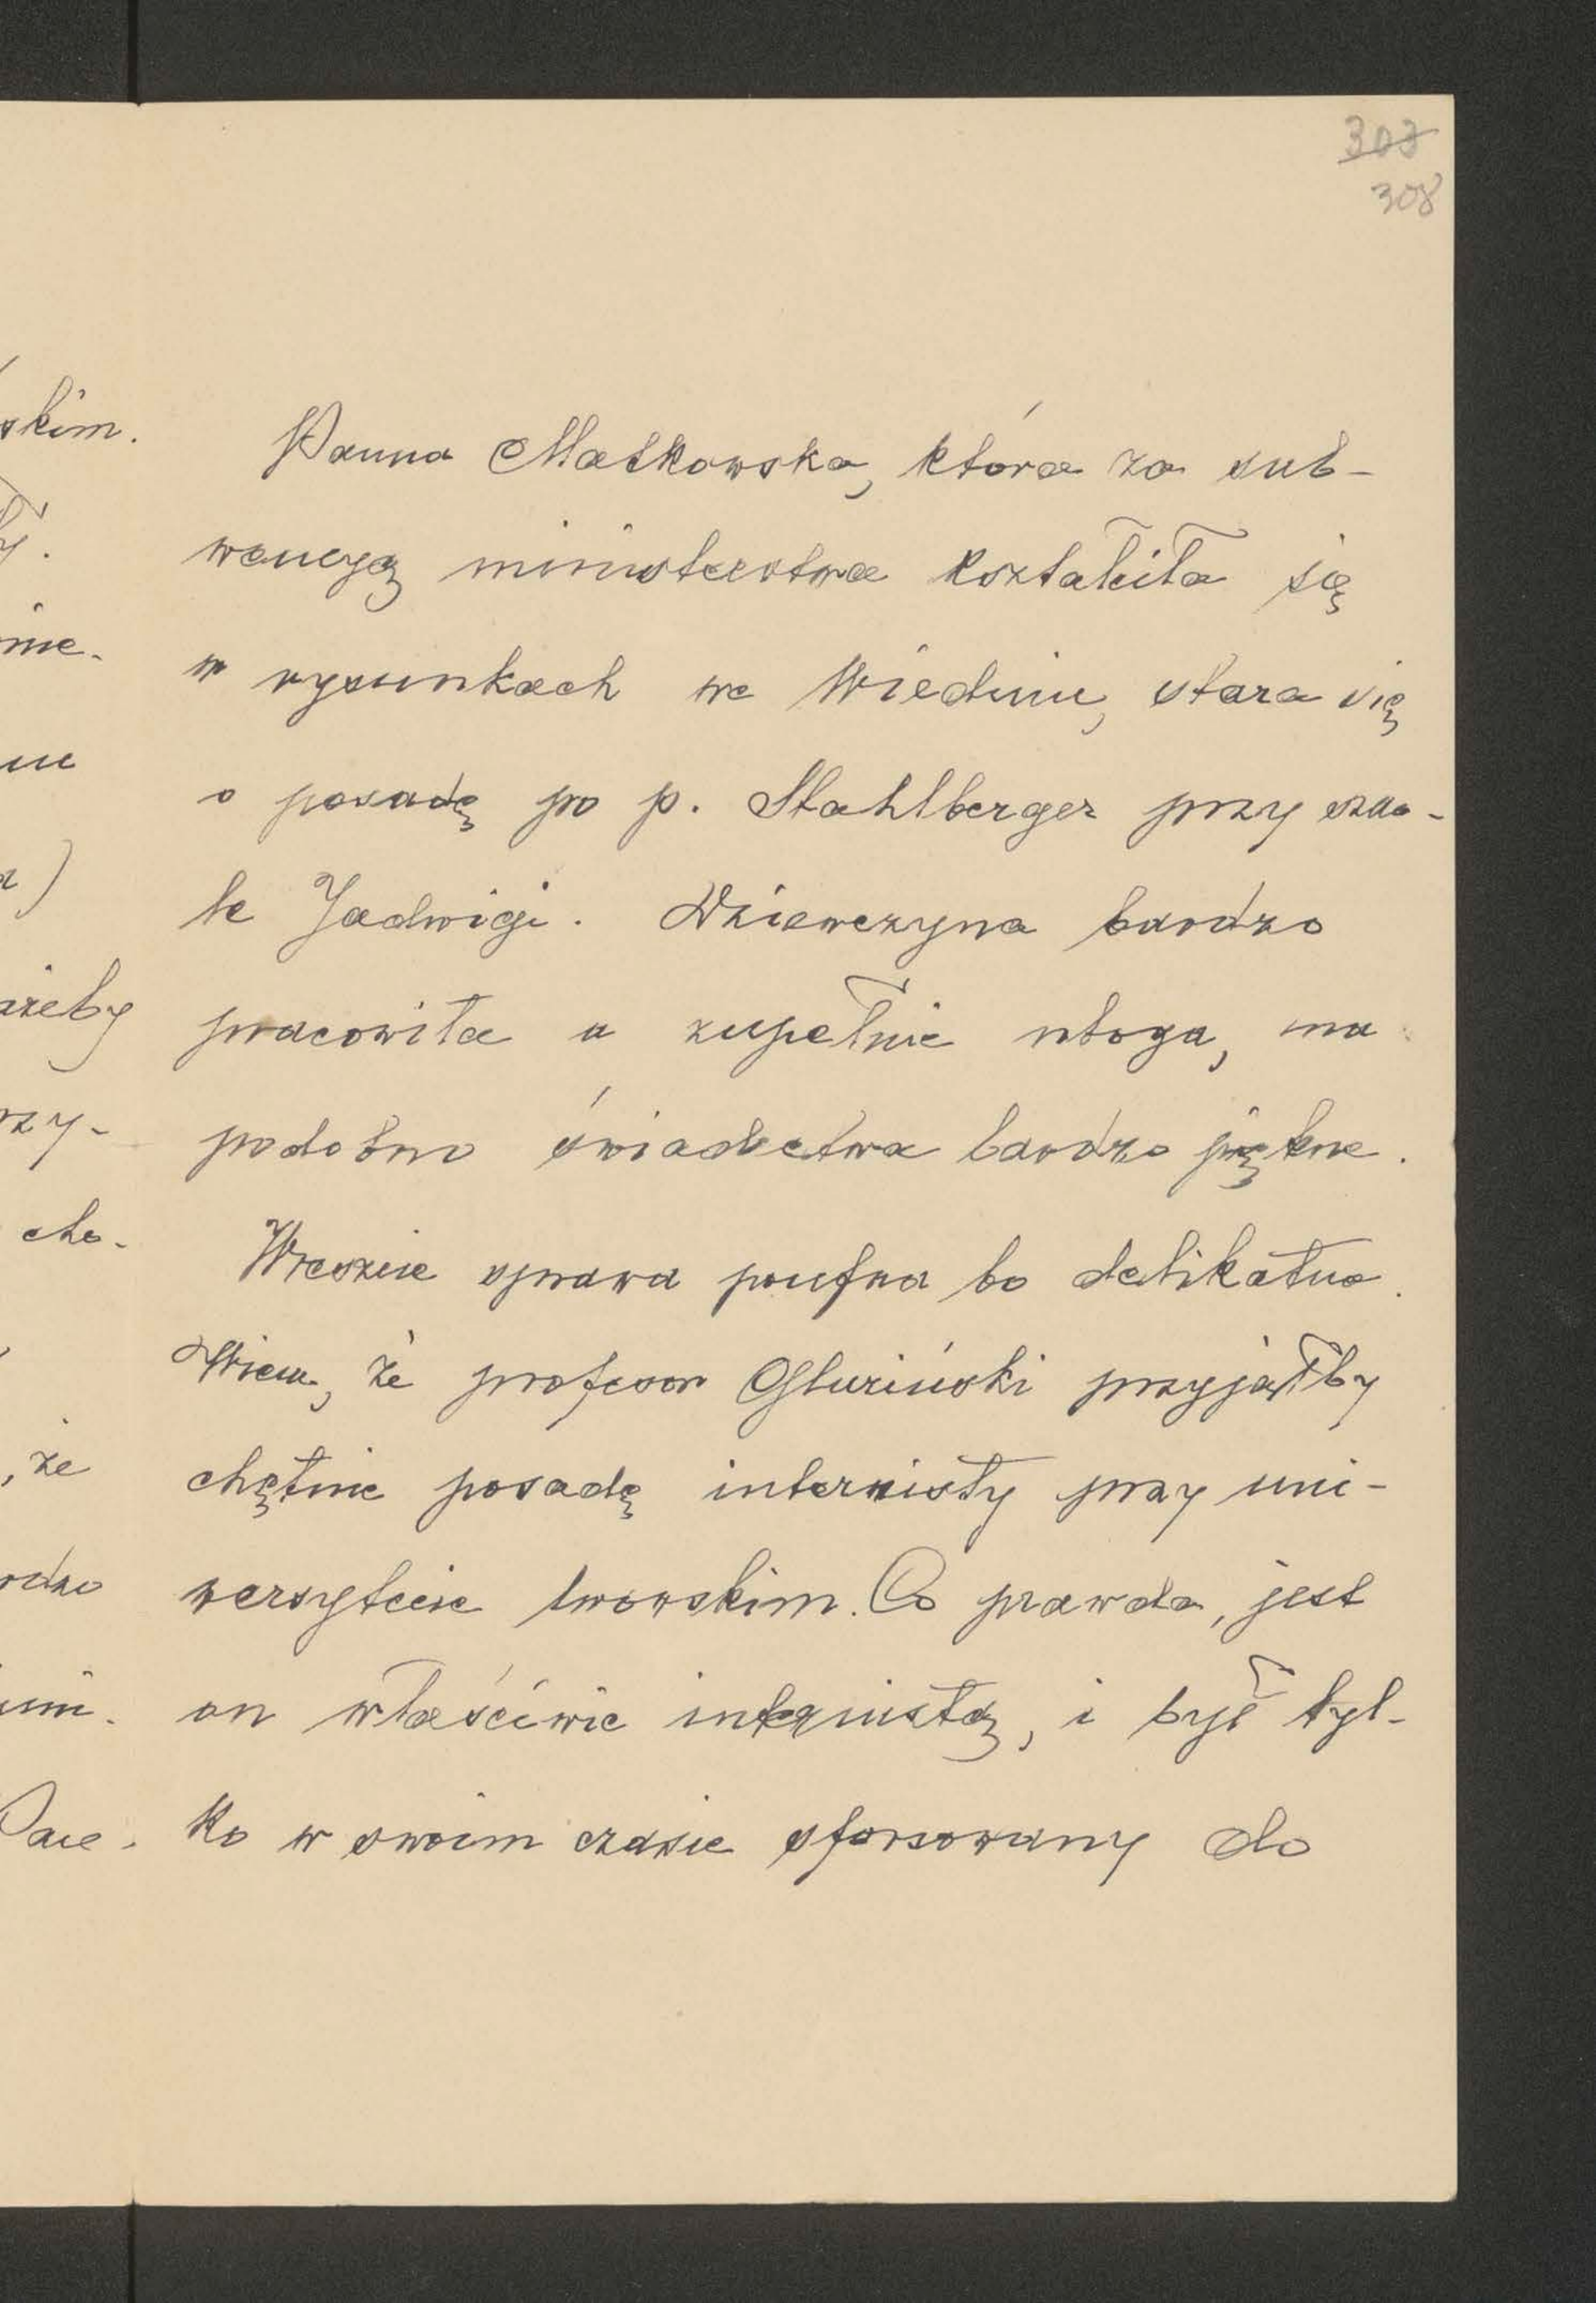 303
308
skim.
Panna Matkowska, która za sub-
wencyą ministerstwa kształciła się
nie.
w rysunkach we Wiedniu, stara się
o posadę po p. Stahlberger przy szko-
le Jadwigi. Dziewczyna bardzo
ażeby
pracowita a zupełnie uboga, ma
rzy-
podobno świadectwa bardzo piękne.
cho-
Wreszcie sprawa poufna bo delikatna.
Wiem, że profesor Gluziński przyjąłby
, że
chętnie posadę internisty przy uni-
wersytecie lwowskim. Co prawda, jest
on właściwie internistą, i był tyl-
ko w swoim czasie sforsowany do